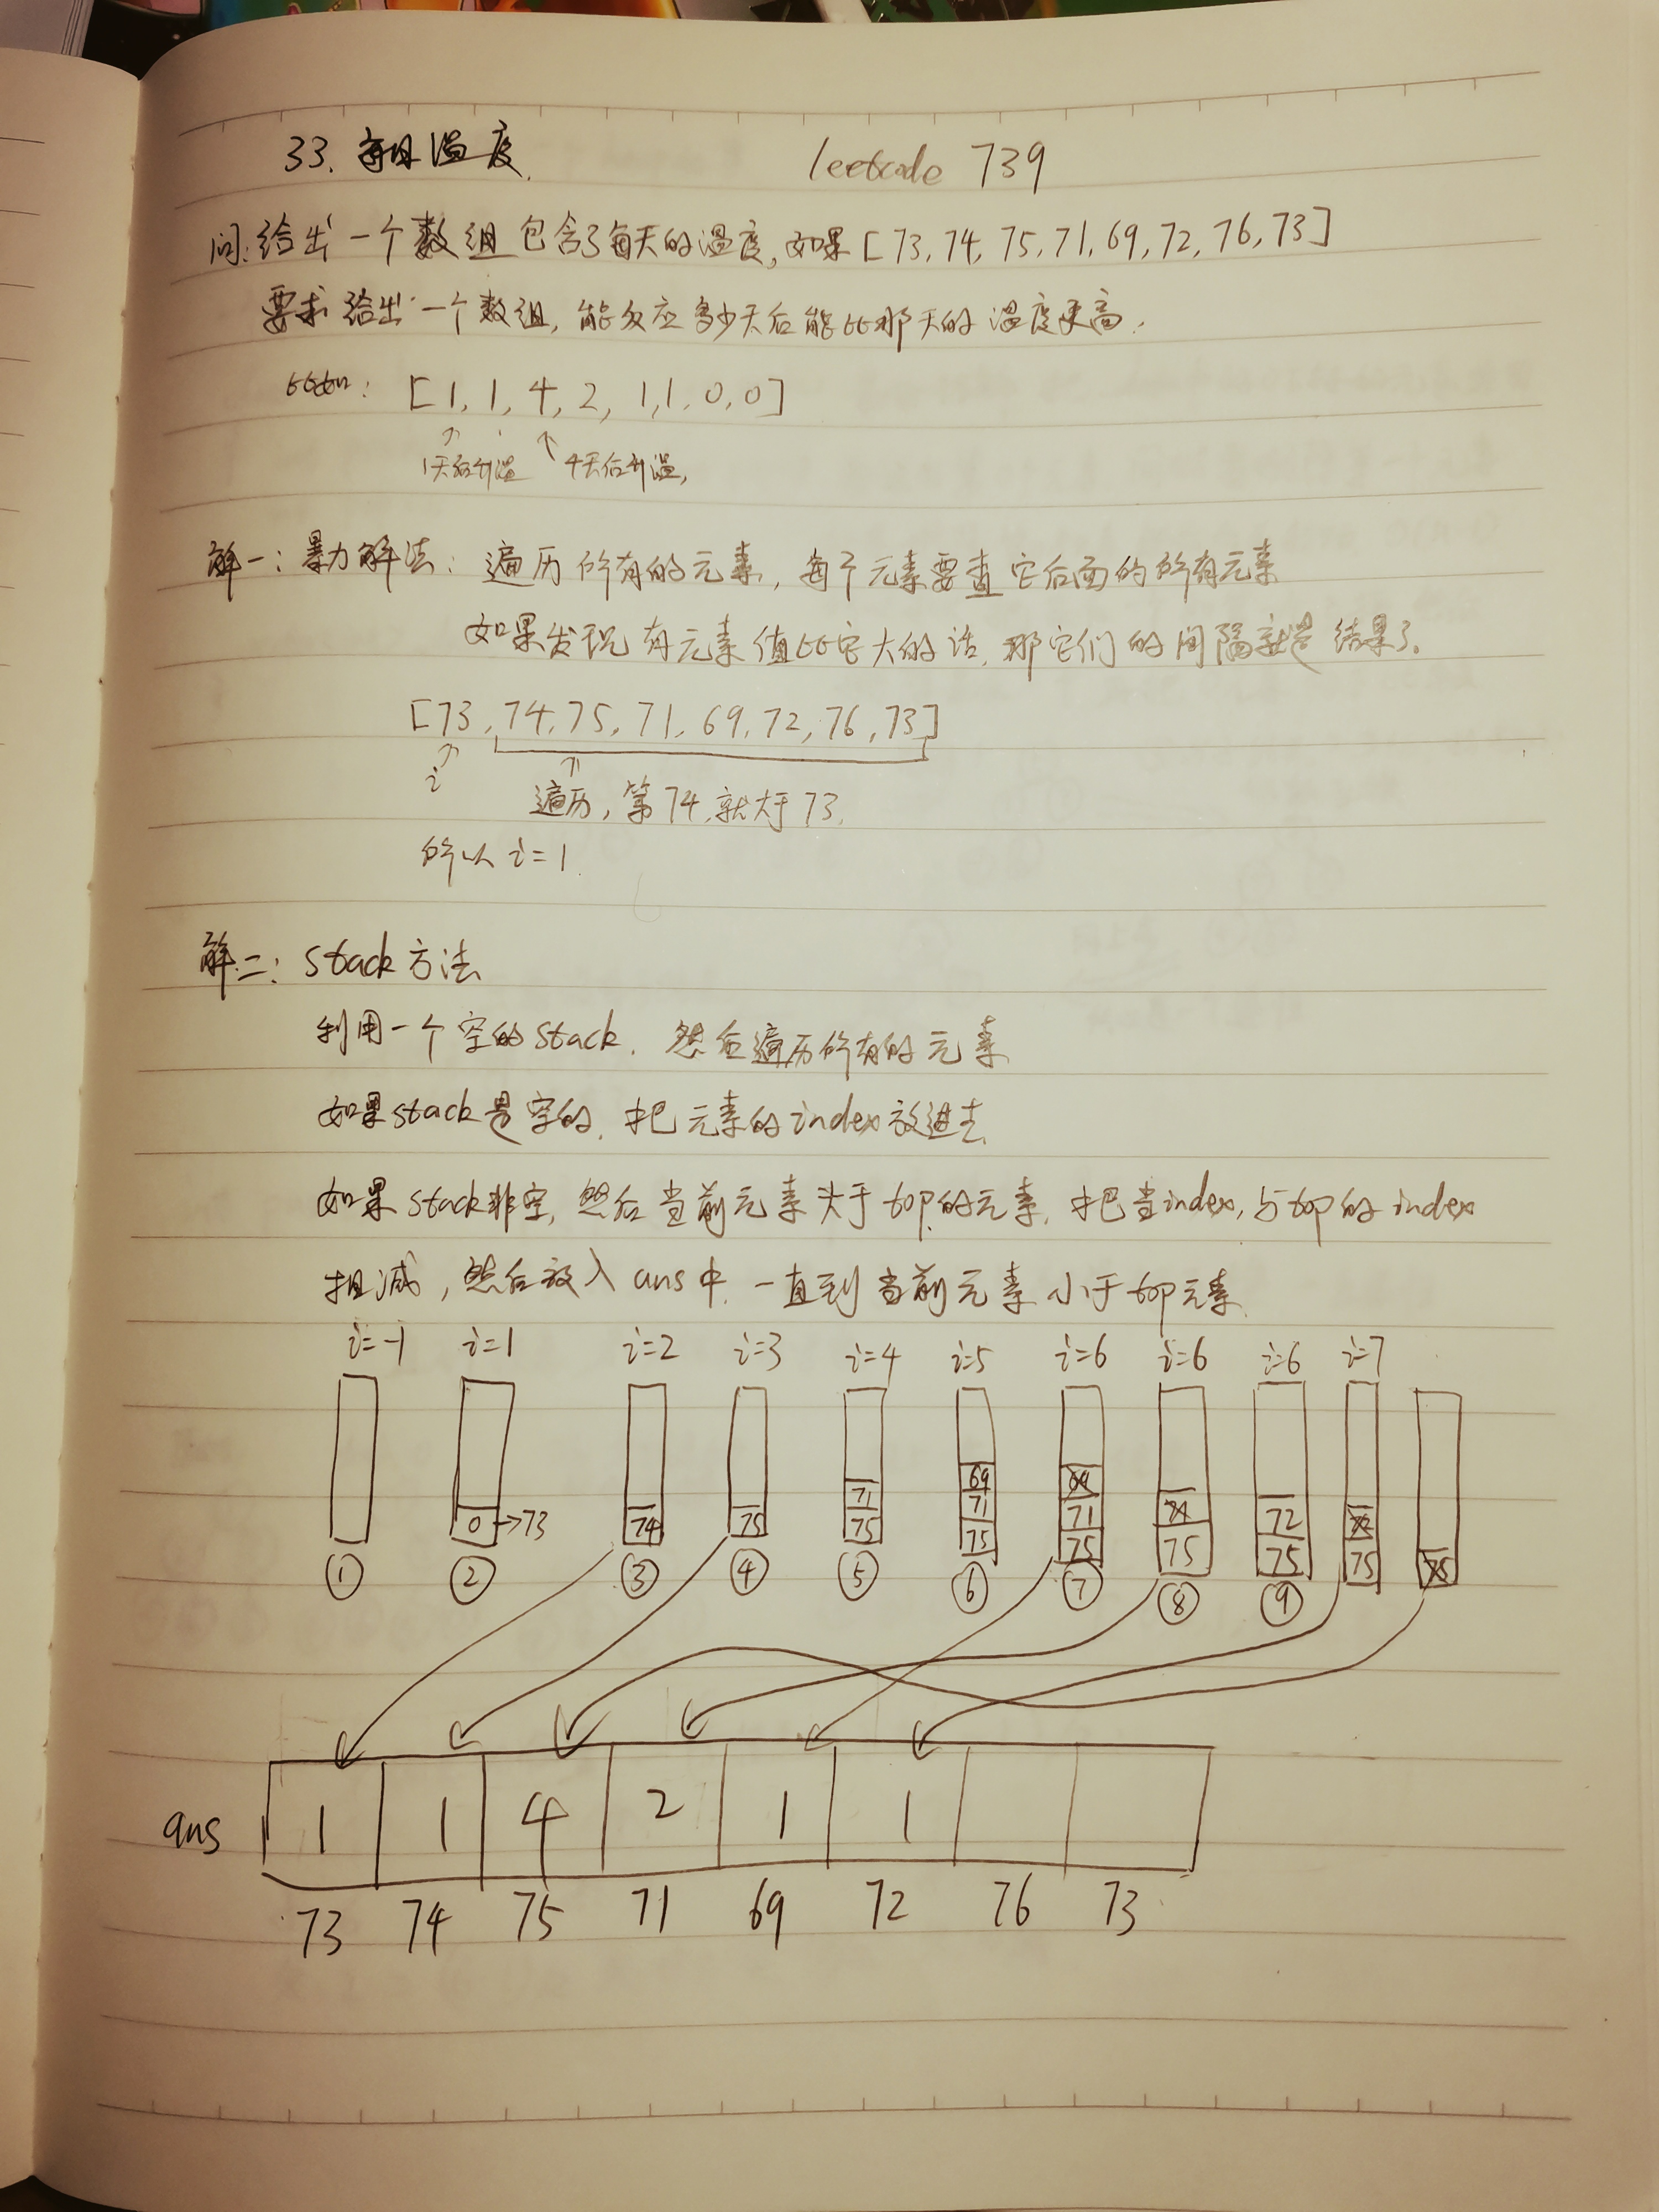 33. 每日温度. leetcode 739
问:给出一个数组包含了每天的温度,如果[73,74,75,71,69,72,76,73]
要求给出一个数组,能反应多少天后能比那天的温度更高.
比如: [1,1,4,2,1,1,0,0]
1天后升温 4天后升温,
解一:暴力解法:遍历所有的元素,每个元素要查它后面的所有元素
如果发现有元素值比它大的话,那它们的间隔就是结果了.
[73,74,75,71,69,72,76,73]
i
遍历,第74,就大于73.
所以i=1.
解二:stack方法
利用一个空的stack.然后遍历所有的元素
如果stack是空的,把元素的index放进去
如果stack非空,然后当前元素大于top的元素,把当index,与top的index
相减,然后放入ans中.一直到当前元素小于top元素.
i=-1 i=1 i=2 i=3 i=4 i=5 i=6 i=6 i=6 i=7
69 69
71 71 71 71 72 72
0→73 74 75 75 75 75 75 75 75 75
① ② ③ ④ ⑤ ⑥ ⑦ ⑧ ⑨
ans 1 1 4 2 1 1
73 74 75 71 69 72 76 73